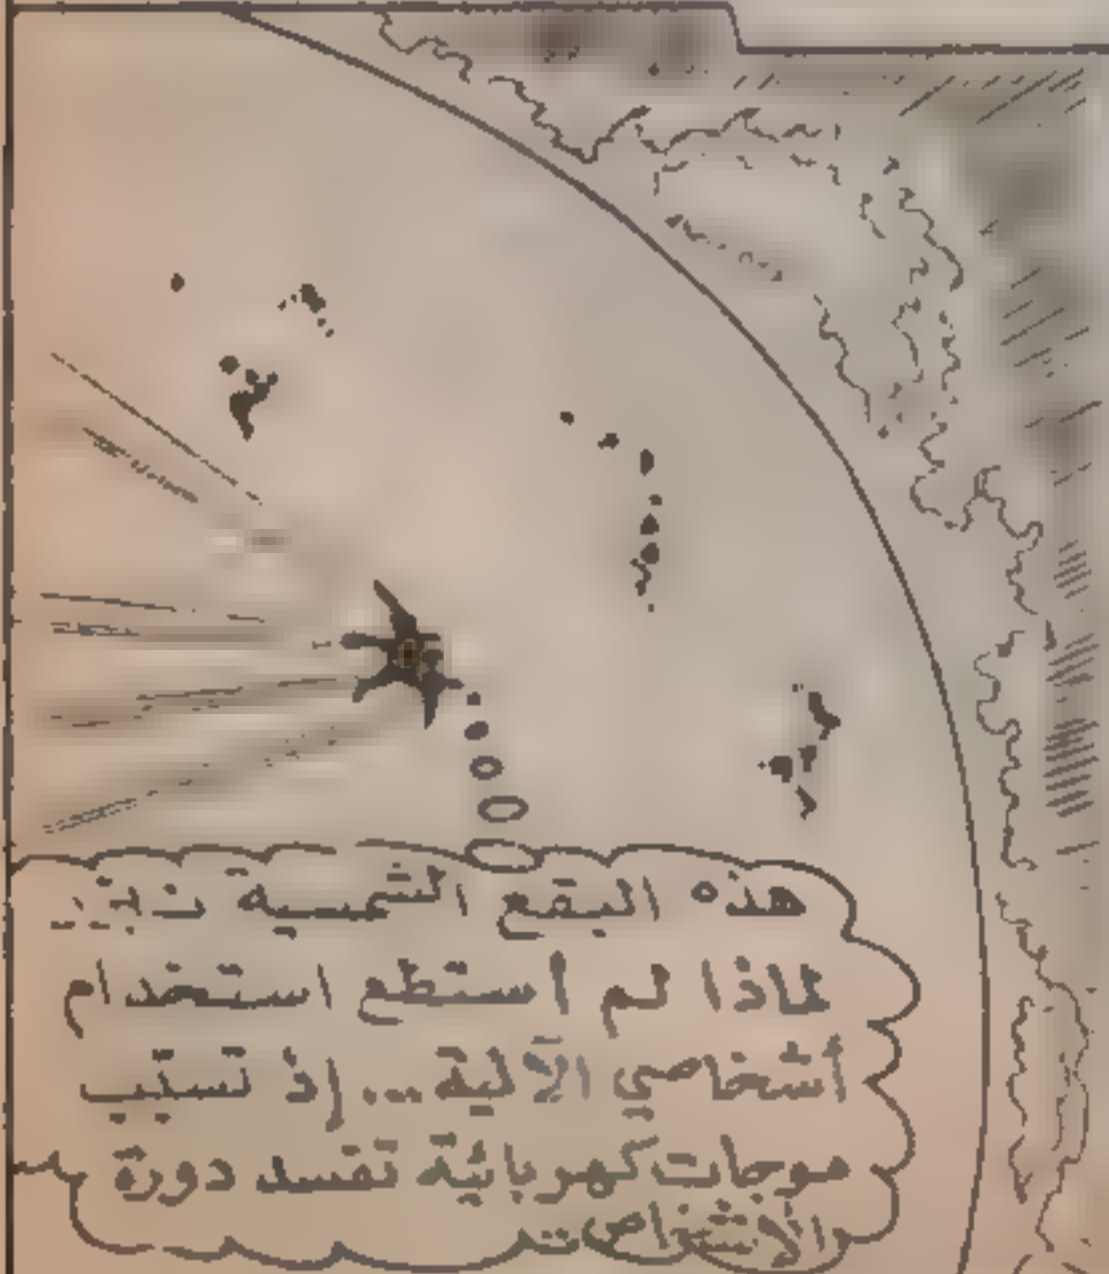 هذه البقع الشمسية تبين
لماذا لم أستطع استخدام
أشخاصي الآلية... إذ تسبب
موجات كهربائية تفسد دورة
الأشخاص